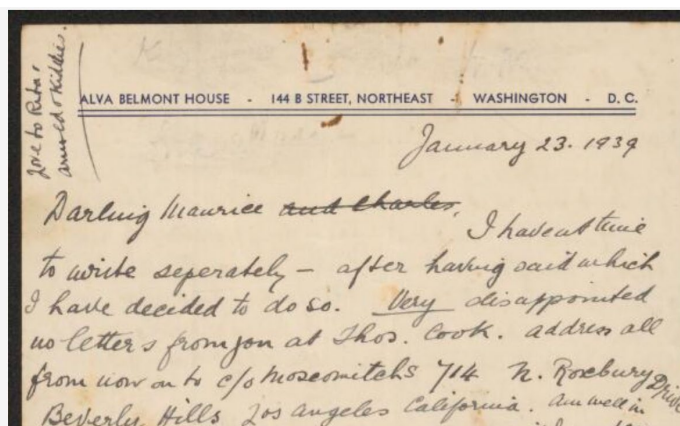 Love to Ruta &
Arnold & Kiddies.
ALVA BELMONT HOUSE - 144 B STREET, NORTHEAST - WASHINGTON - D. C.
January 23. 1939
Darling Maurice and Charles,
I haven't time
to write seperately – after having said which
I have decided to do so. Very disappointed
no letters from you at Thos. Cook. address all
from now on to c/o Moscovitchs 714 N. Roxbury Drive
Beverly Hills Los Angeles California. Am well in